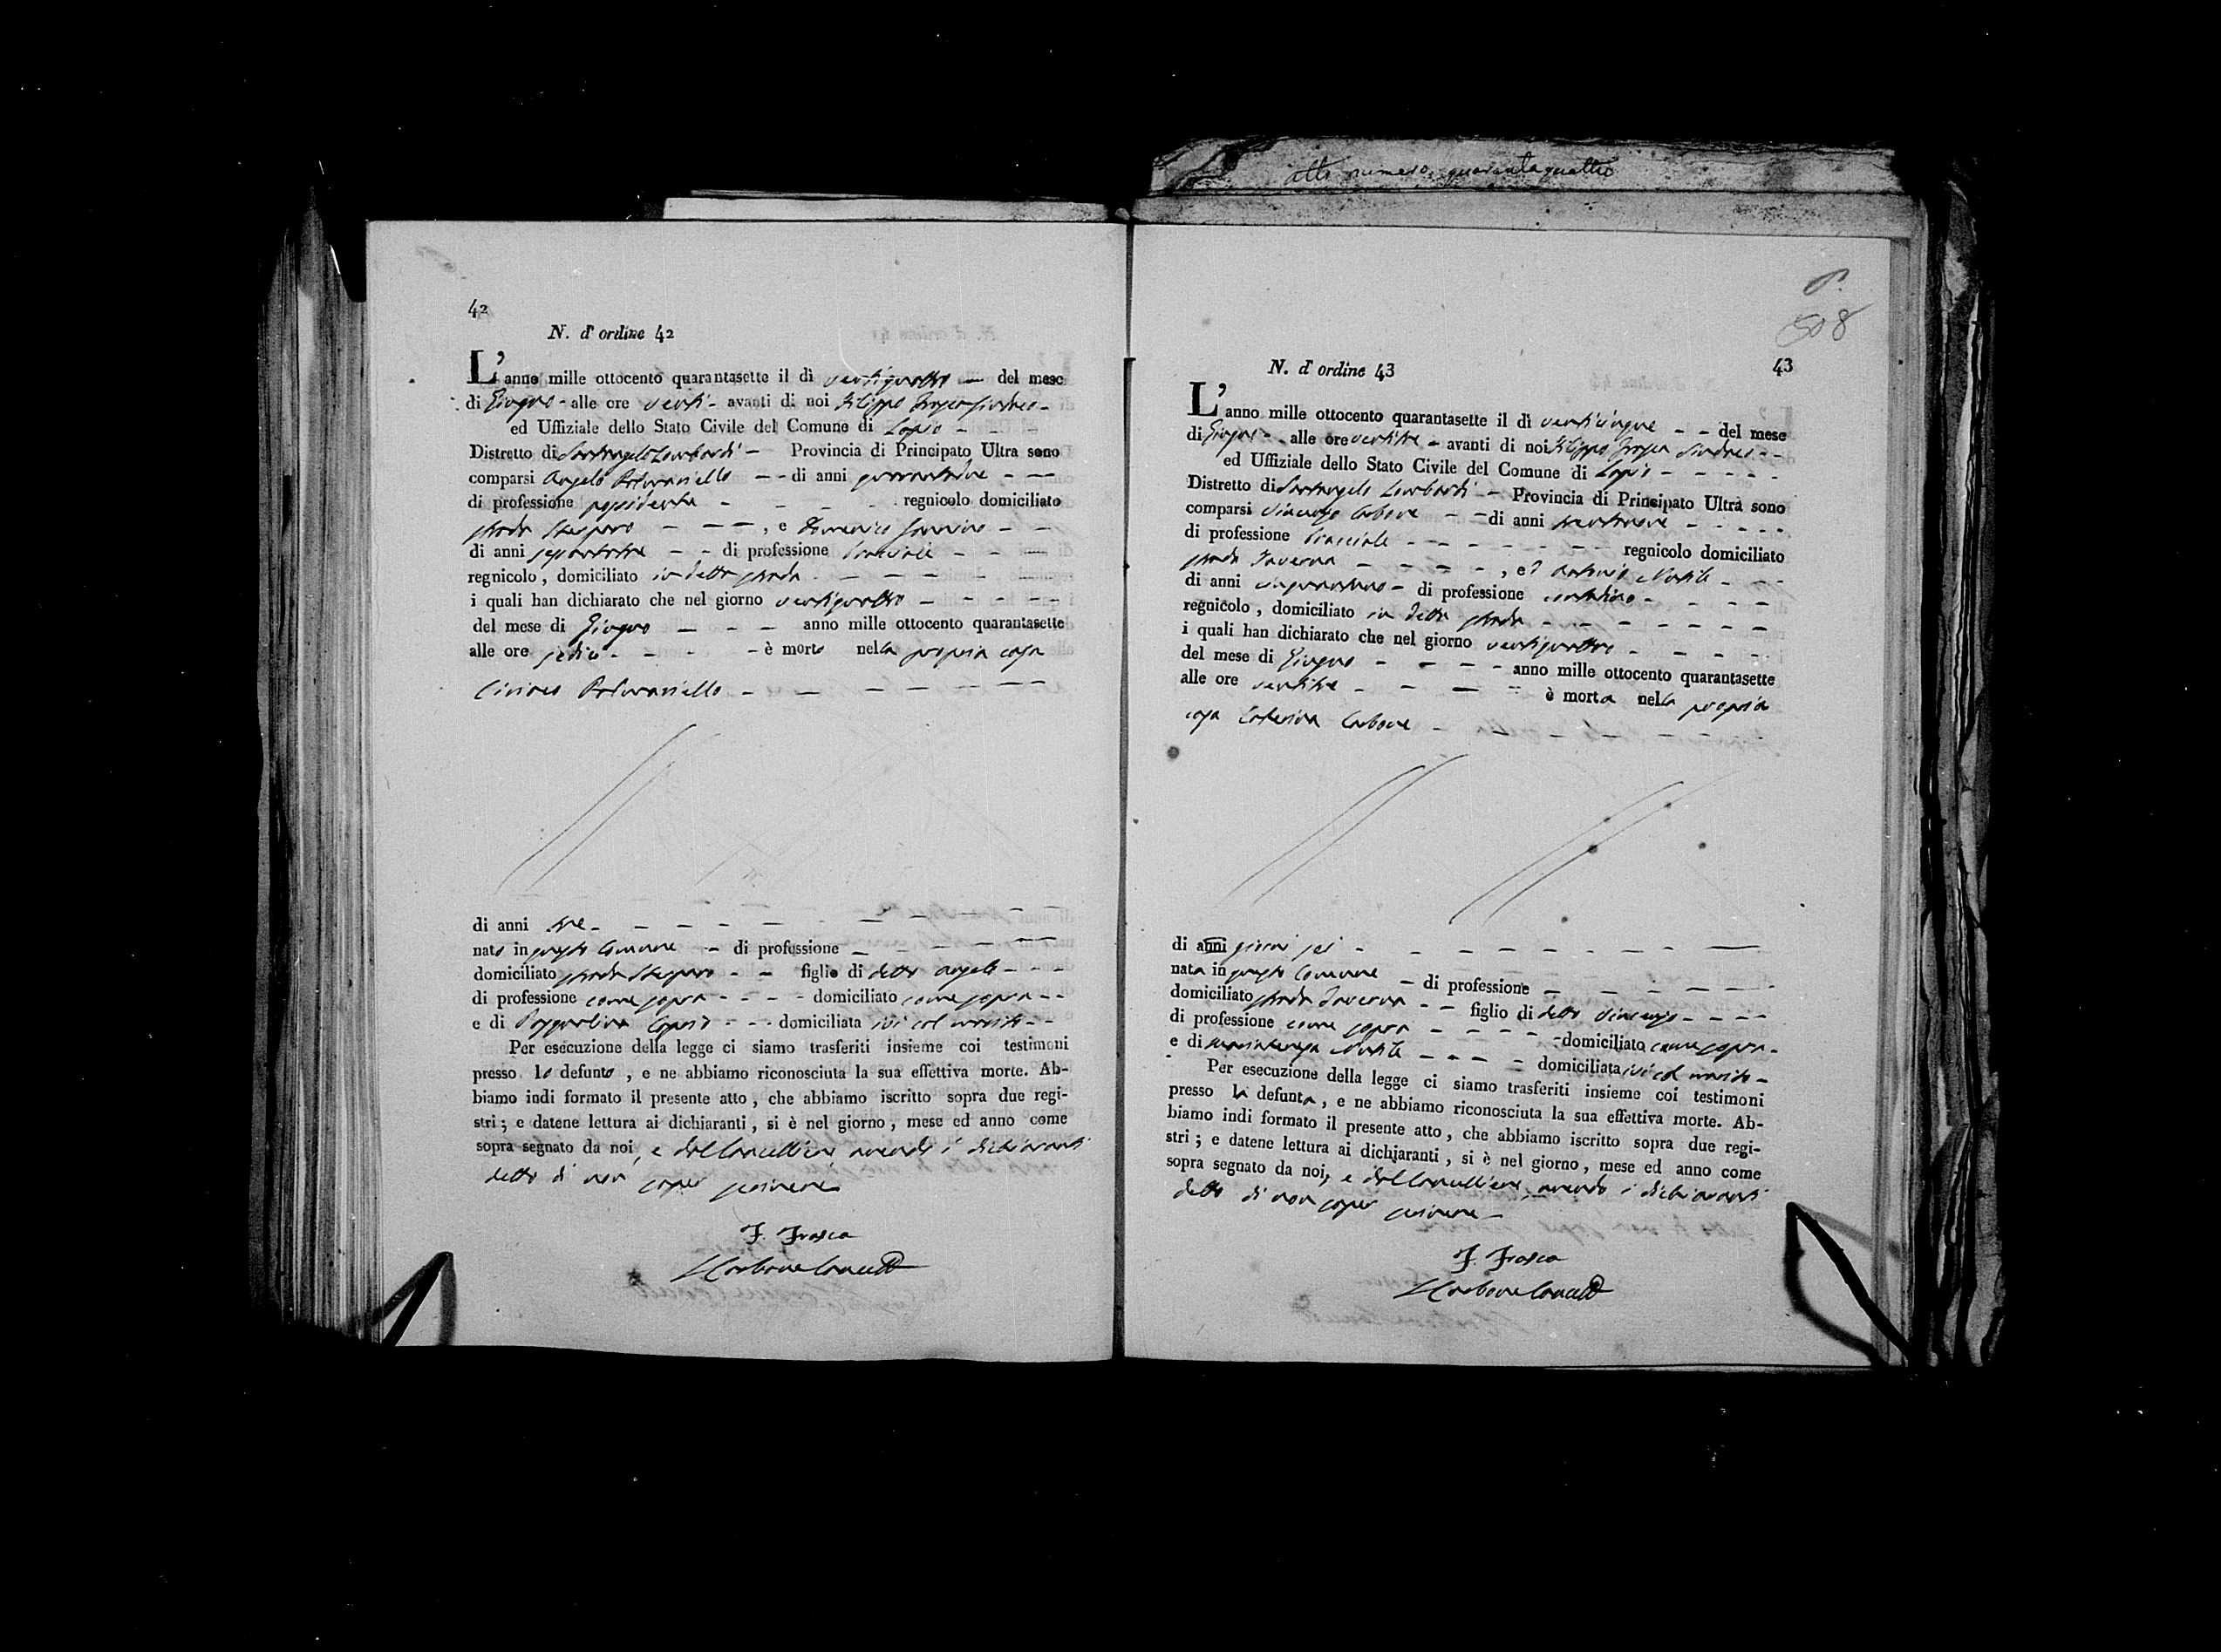 atto numero quarantaquattro
42
N. d' ordine 42
L'anno mille ottocento quarantasette il dì ventiquattro — del mese
di Giugno - alle ore venti - avanti di noi Filippo Frasca Sindaco -
ed Uffiziale dello Stato Civile del Comune di Lapio - - -
Distretto di Santangelo Lombardi - Provincia di Principato Ultra sono
comparsi Angelo - - di anni quarantadue - -
di professione possidente - - - - regnicolo domiciliato
strada - - - , e Domenico - -
di anni settantatre - - di professione bracciale - - -
regnicolo, domiciliato in detta strada - - - - -
i quali han dichiarato che nel giorno ventiquattro - - - - -
del mese di Giugno - - - anno mille ottocento quarantasette
alle ore sedici - - - - è morto nella propria casa
Ciriaco - - - - - - -
di anni tre - - - - - - - - - -
nato in questo Comune - di professione - - - - - -
domiciliato strada - - figlio di detto Angelo - - -
di professione come sopra - - - - domiciliato come sopra - -
e di Pasqualina - - - domiciliata ivi col marito - -
Per esecuzione della legge ci siamo trasferiti insieme coi testimoni
presso lo defunto , e ne abbiamo riconosciuta la sua effettiva morte. Ab-
biamo indi formato il presente atto , che abbiamo iscritto sopra due regi-
stri ; e datene lettura ai dichiaranti , si è nel giorno , mese ed anno come
sopra segnato da noi, e dal Cancelliere avendo i dichiaranti
detto di non saper scrivere
F. Frasca
Carbone Canc
508
43
N. d' ordine 43
L'anno mille ottocento quarantasette il dì venticinque - - del mese
di Giugno - alle ore ventitre - avanti di noi Filippo Frasca Sindaco - -
ed Uffiziale dello Stato Civile del Comune di Lapio - - - - -
Distretto di Santangelo Lombardi - Provincia di Principato Ultra sono
comparsi Vincenzo Carbone - - di anni trentanove - - - - -
di professione bracciale - - - - - - - regnicolo domiciliato
strada Taverna - - - - , ed Antonio - - -
di anni - di professione contadino - - - -
regnicolo , domiciliato in detta strada - - - - - - -
i quali han dichiarato che nel giorno ventiquattro - - - - -
del mese di Giugno - - - - anno mille ottocento quarantasette
alle ore ventitre - - - - è morta nella propria
casa Caterina Carbone - - - - - - -
di anni giorni sei - - - - - - - -
nata in questo Comune - di professione - - - - - -
domiciliato strada Taverna - - figlio di detto Vincenzo - - - -
di professione come sopra - - - - - domiciliato come sopra -
e di Mariateresa - - - - domiciliata ivi col marito -
Per esecuzione della legge ci siamo trasferiti insieme coi testimoni
presso la defunta , e ne abbiamo riconosciuta la sua effettiva morte. Ab-
biamo indi formato il presente atto , che abbiamo iscritto sopra due regi-
stri ; e datene lettura ai dichiaranti , si è nel giorno , mese ed anno come
sopra segnato da noi, e dal Cancelliere, avendo i dichiaranti
detto di non saper scrivere -
F. Frasca
Carbone Canc